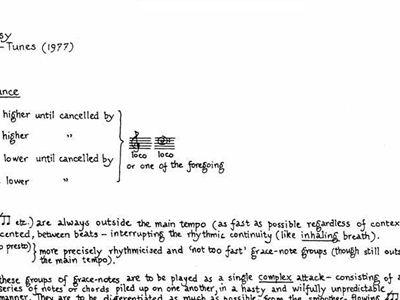 sy
-Tunes (1977)
ance
higher until cancelled by
higher "
lower until cancelled by
lower "
loco loco
or one of the foregoing
etc.) are always outside the main tempo (as fast as possible regardless of contex
cented, between beats - interrupting the rhythmic continuity (like inhaling breath).
o presto) } more precisely rhythmicised and 'not too fast' grace-note groups (though still outs
the main tempo).
hese groups of grace-notes are to be played as a single complex attack - consisting of a
series of notes or chords piled up on one another, in a hasty and wilfully unpredictable
manner. They are to be differentiated as much as possible from the smoother flowing